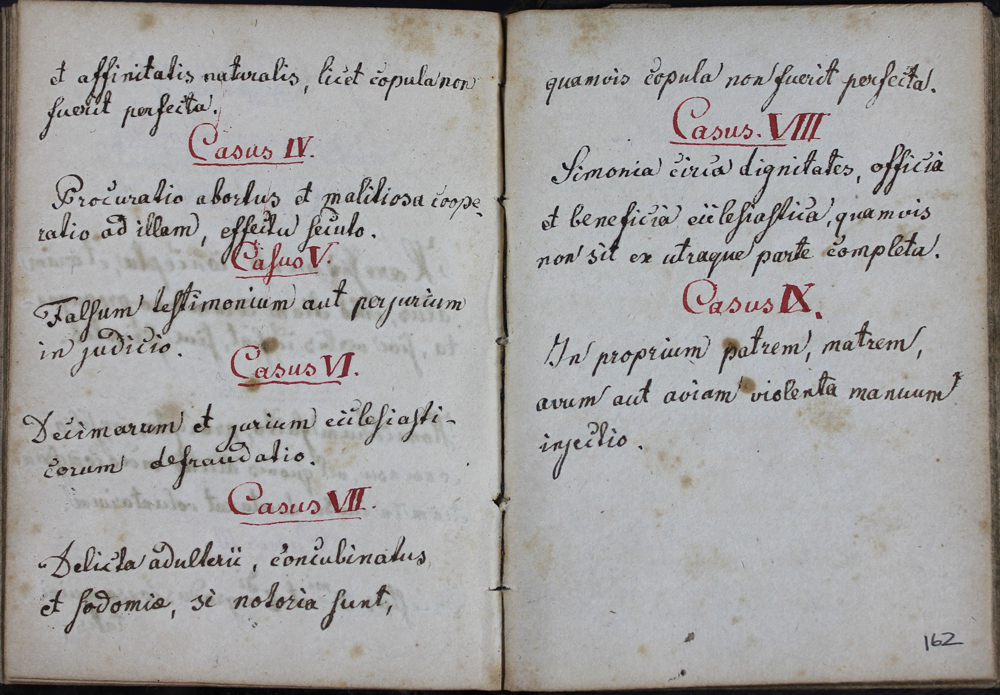 et affinitatis naturalis, licet copula non
fuerit perfecta.
Casus IV.
Procuratio abortus et malitiosa coope-
ratio ad illam, effectu secuto.
Casus V.
Falsum testimonium aut perjurium
in judicio.
Casus VI.
Decimarum et jurium ecclesiasti-
corum defraudatio.
Casus VII.
Delicta adulterii, concubinatus
et sodomiæ, si notoria sunt,
quamvis copula non fuerit perfecta.
Casus. VIII
Simonia circa dignitates, officia
et beneficia ecclesiastica, quamvis
non sit ex utraque parte completa.
Casus IX.
In proprium patrem, matrem,
avum aut aviam violenta manuum
injectio.
162